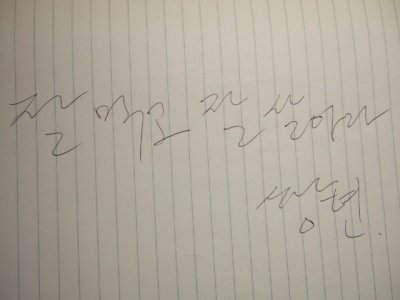 잘 먹고 잘 살아라
상현.